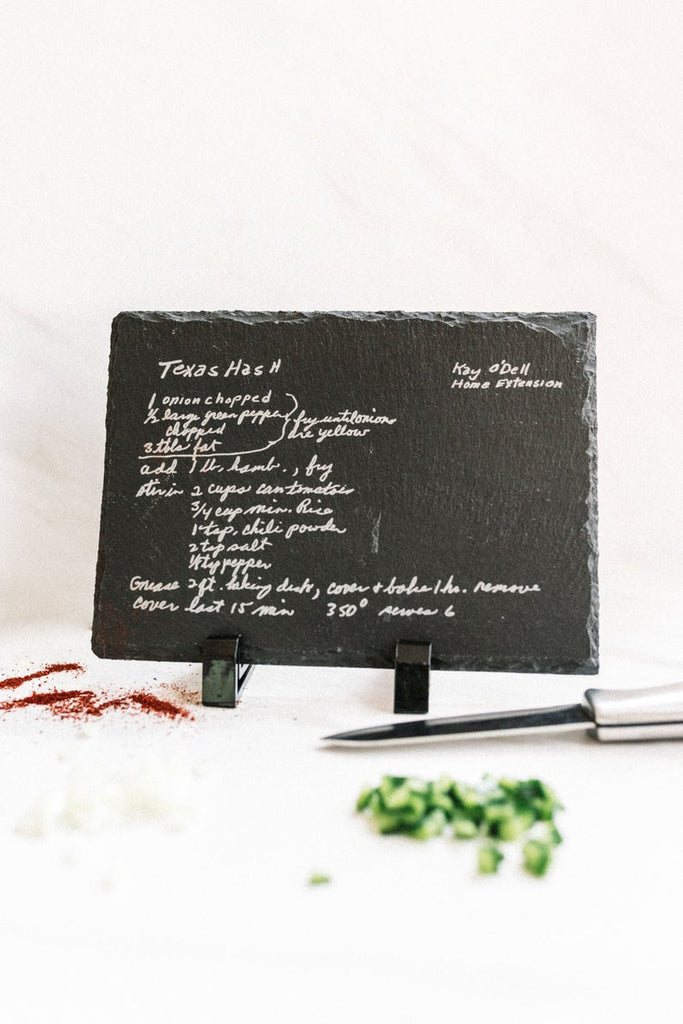 Texas Hash
Kay O'Dell
Home Extension
1 onion chopped
½ large green pepper
chopped
3 tbls fat
fry until onions
are yellow
add 1 lb. hamb., fry
stir in 2 cups can tomatoes
3/4 cup min. Rice
1 tsp. chili powder
2 tsp salt
pepper
Grease 2 qt. baking dish, cover + bake 1 hr. remove
cover last 15 min 350° serves 6